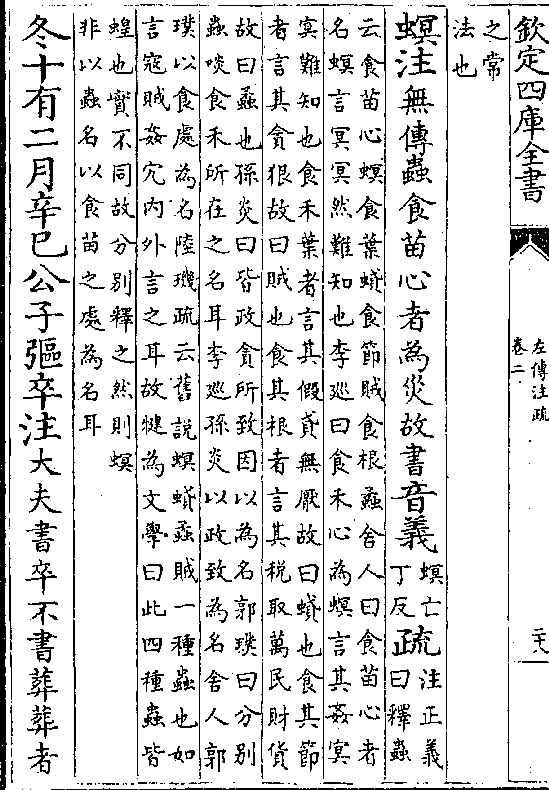 欽定四庫全書
左傳注疏
卷二
二十八
之常
法也
螟注無傳蟲食苗心者為災故書音義螟亡丁反疏注正義曰釋蟲
云食苗心螟食葉蟘食節賊食根蟊舍人曰食苗心者
名螟言冥冥然難知也李廵曰食禾心為螟言其姦冥
冥難知也食禾葉者言其假貣無厭故曰蟘也食其節
者言其貪狠故曰賊也食其根者言其税取萬民財貨
故曰蟊也孫炎曰皆政貪所致因以為名郭璞曰分別
蟲啖食禾所在之名耳李廵孫炎以政致為名舍人郭
璞以食處為名陸璣疏云舊說螟蟘蟊賊一種蟲也如
言寇賊姦宄內外言之耳故犍為文學曰此四種蟲皆
蝗也實不同故分別釋之然則螟
非以蟲名以食苗之處為名耳
冬十有二月辛巳公子彄卒注大夫書卒不書葬葬者